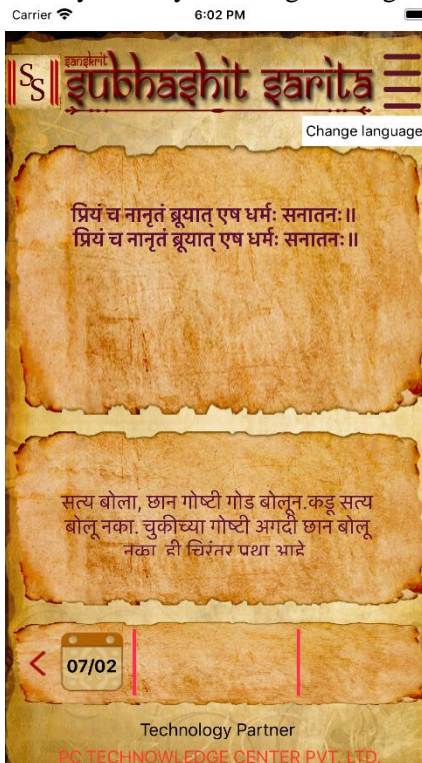 Carrier
6:02 PM
SS
sanskrit
subhashit sarita
Change language
प्रियं च नानृतं ब्रूयात् एष धर्मः सनातनः॥
प्रियं च नानृतं ब्रूयात् एष धर्मः सनातनः॥
सत्य बोला, छान गोष्टी गोड बोलून.कडू सत्य
बोलू नका. चुकीच्या गोष्टी अगदी छान बोलू
नका. ही चिरंतर प्रथा आहे
07/02
Technology Partner
PC TECHNOWLEDGE CENTER PVT. LTD.